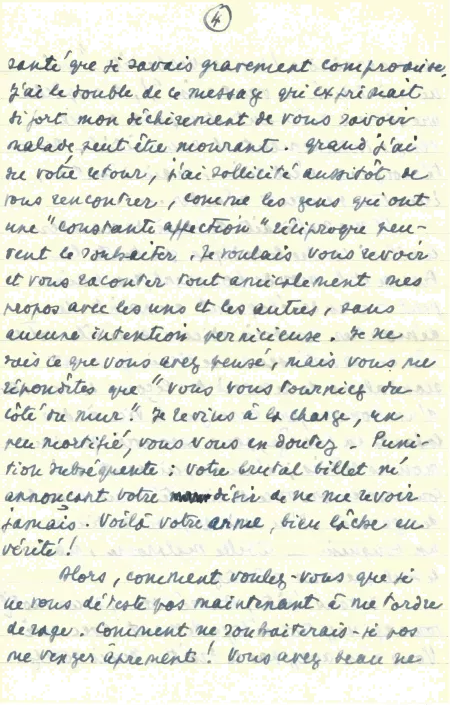 4
santé que je savais gravement compromise,
j'ai le double de ce message qui exprimait
si fort mon déchirement de vous savoir
malade peut être mourant. quand j'ai
su votre retour, j'ai sollicité aussitôt de
vous rencontrer, comme les gens qui ont
une "constante affection" réciproque peu-
vent le souhaiter. Je voulais vous revoir
et vous raconter tout amicalement mes
propos avec les uns et les autres, sans
aucune intention pernicieuse. Je ne
sais ce que vous avez pensé, mais vous me
répondites que "vous vous tourniez du
côté du mur". Je revins à la charge, un
peu mortifié, vous vous en doutez. Puni-
tion subséquente : votre brutal billet m'
annonçant votre désir de ne me revoir
jamais. Voilà votre arme, bien lâche en
vérité !
Alors, comment voulez-vous que je
ne vous déteste pas maintenant à me tordre
de rage. Comment ne souhaiterais-je pas
me venger âprement ! Vous avez beau ne